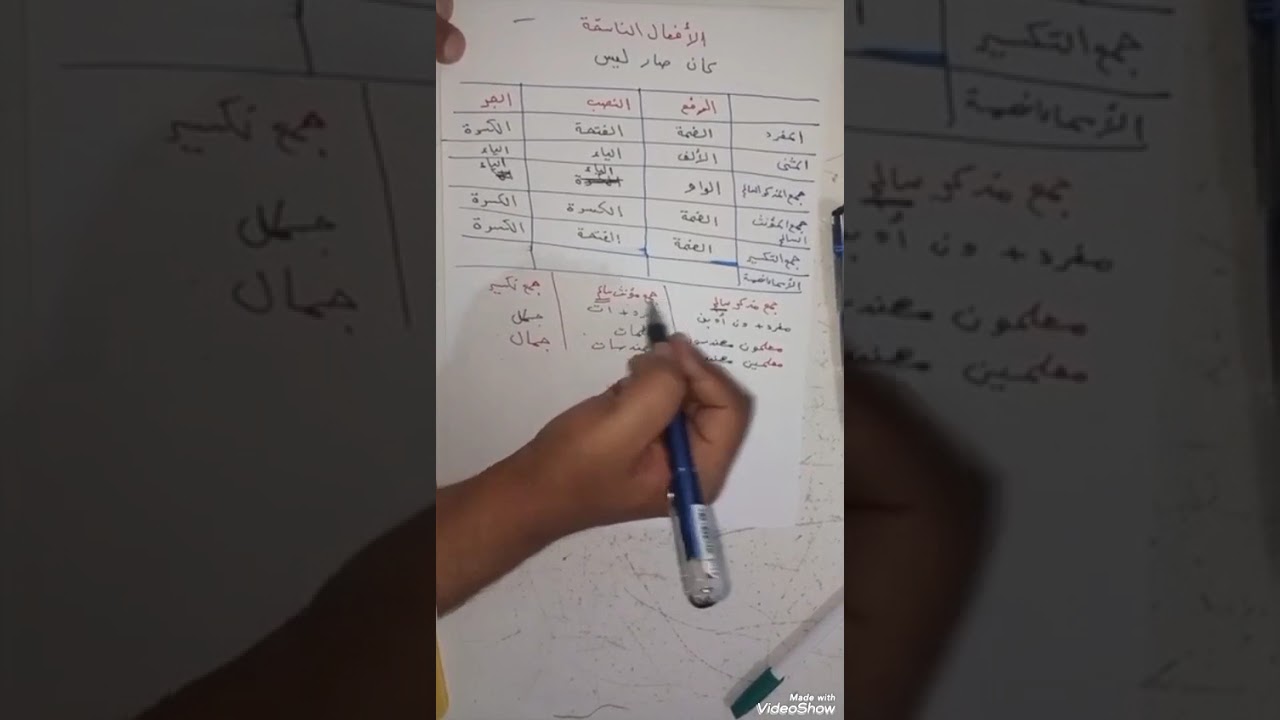 الأفعال الناسخة
كان صار ليس
الرفع النصب الجر
المفرد الضمة الفتحة الكسرة
المثنى الألف الياء الياء
جمع المذكر السالم الواو الياء الياء
جمع المؤنث السالم الضمة الكسرة الكسرة
جمع التكسير الضمة الفتحة الكسرة
الأسماء الخمسة
جمع مذكر سالم جمع مؤنث سالم جمع تكسير
مفرد + ون أو ين مفرد + ات جمل
معلمون مهندسون معلمات جمال
معلمين مهندسات
Made with
VideoShow